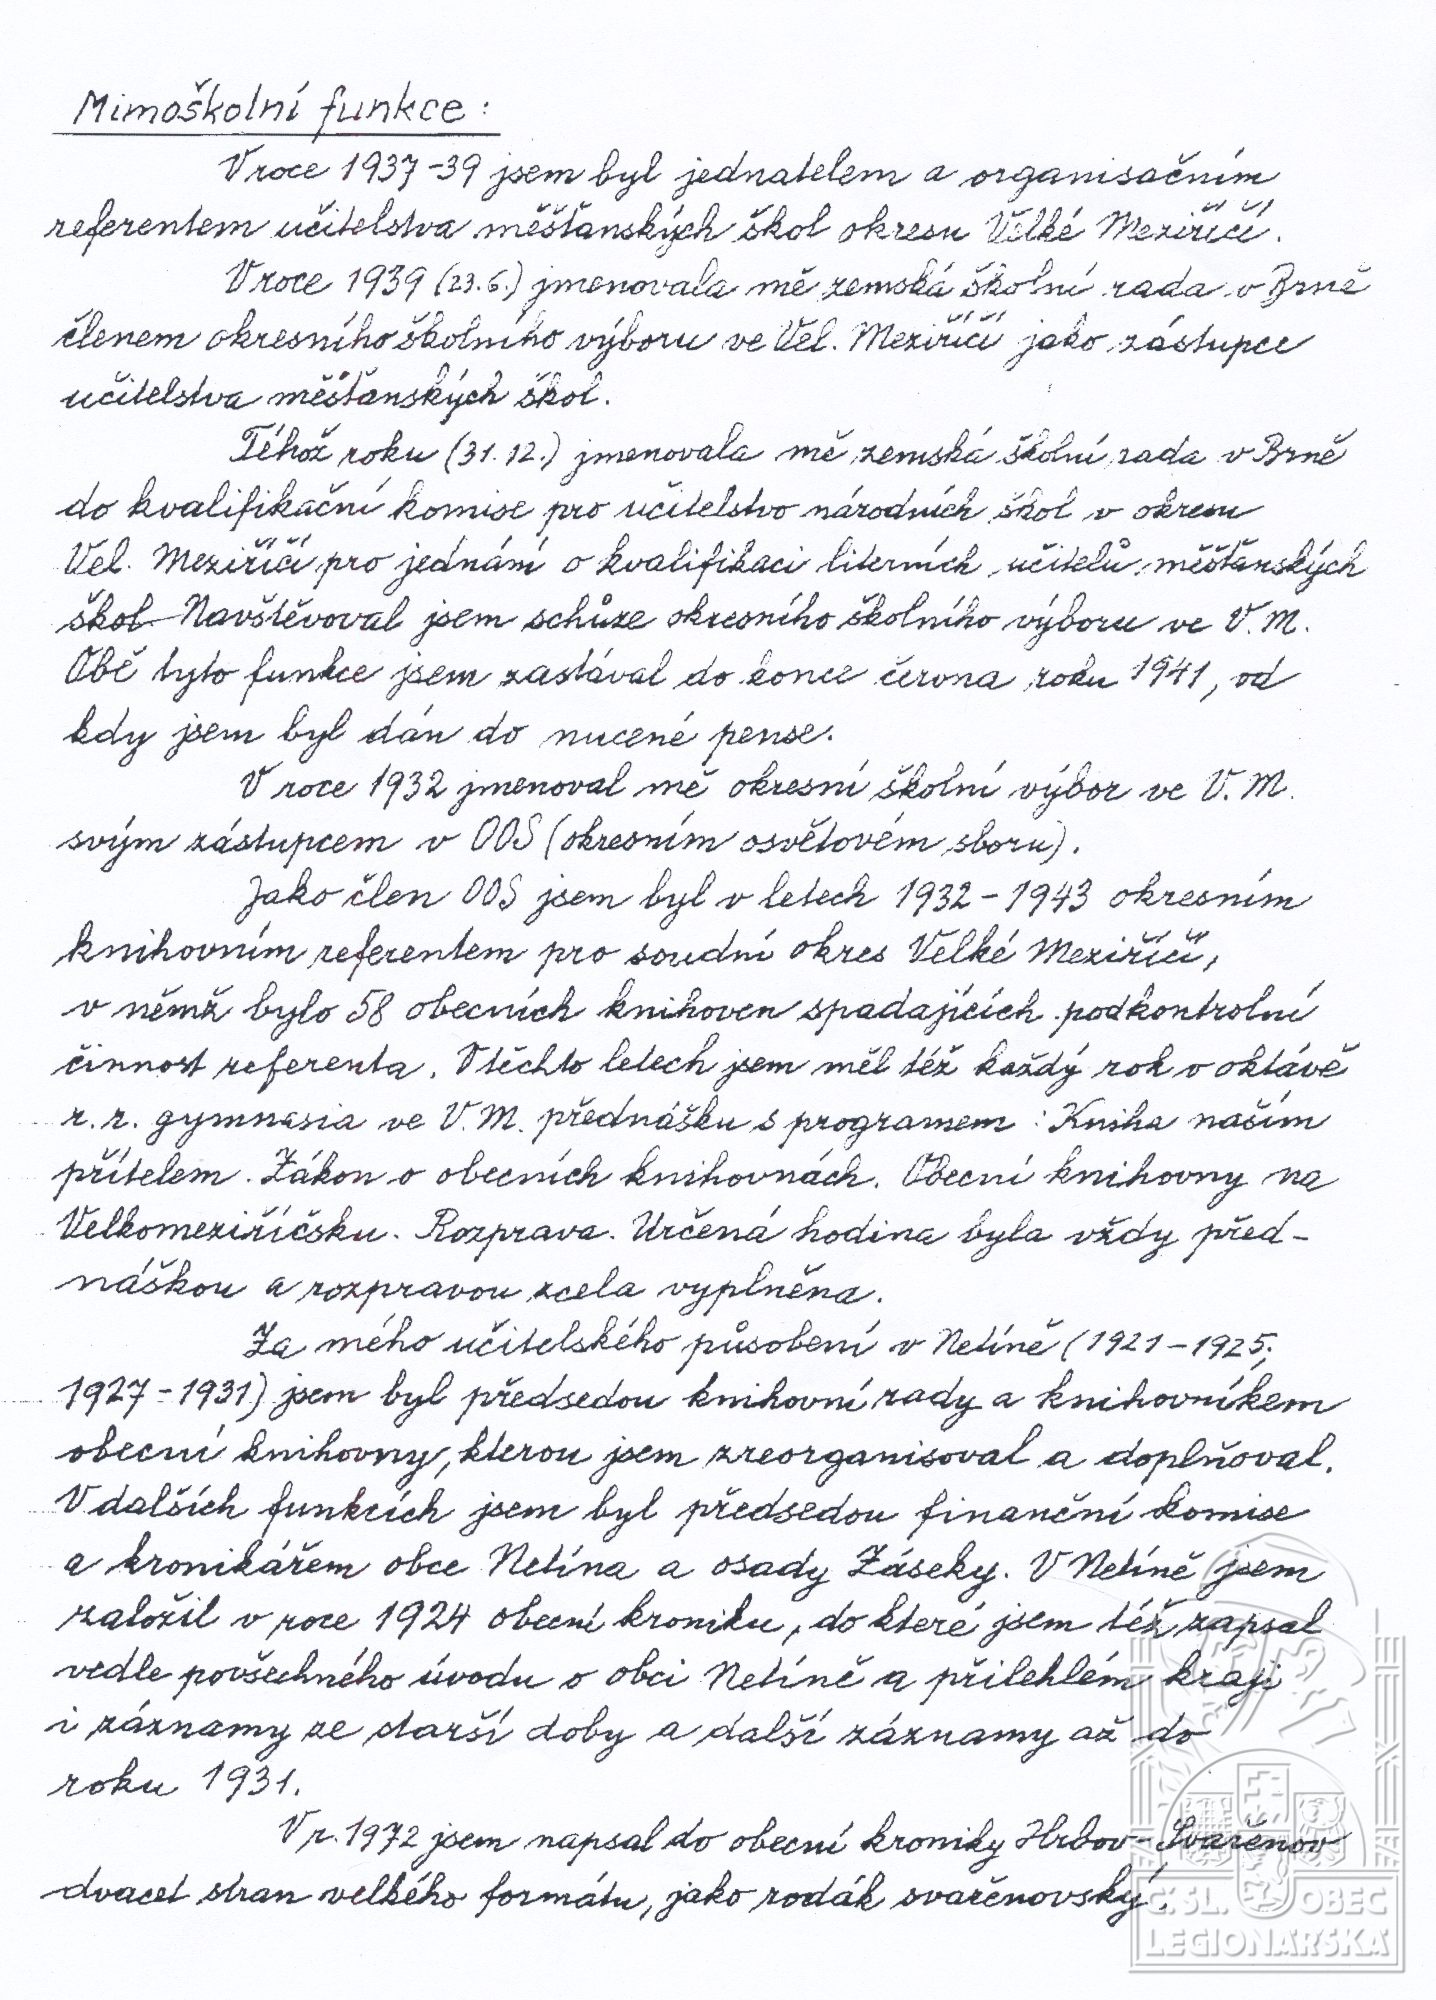 Mimoškolní funkce:
V roce 1937-39 jsem byl jednatelem a organisačním
referentem učitelstva měšťanských škol okresu Velké Meziříčí.
V roce 1939 (23.6.) jmenovala mě zemská školní rada v Brně
členem okresního školního výboru ve Vel. Meziříčí jako zástupce
učitelstva měšťanských škol.
Téhož roku (31.12.) jmenovala mě zemská školní rada v Brně
do kvalifikační komise pro učitelstvo národních škol v okresu
Vel. Meziříčí pro jednání o kvalifikaci literních učitelů měšťanských
škol. Navštěvoval jsem schůze okresního školního výboru ve V. M.
Obě tyto funkce jsem zastával do konce června roku 1941, od
kdy jsem byl dán do nucené pense.
V roce 1932 jmenoval mě okresní školní výbor ve V. M.
svým zástupcem v OOS (okresním osvětovém sboru).
Jako člen OOS jsem byl v letech 1932-1943 okresním
knihovním referentem pro soudní okres Velké Meziříčí,
v němž bylo 58 obecních knihoven spadajících pod kontrolní
činnost referenta. V těchto letech jsem měl též každý rok v oktávě
r. r. gymnasia ve V. M. přednášku s programem: Kniha naším
přítelem. Zákon o obecních knihovnách. Obecní knihovny na
Velkomeziříčsku. Rozprava. Určená hodina byla vždy před-
náškou a rozpravou zcela vyplněna.
Za mého učitelského působení v Netíně (1921-1925;
1927-1931) jsem byl předsedou knihovní rady a knihovníkem
obecní knihovny, kterou jsem zreorganisoval a doplňoval.
V dalších funkcích jsem byl předsedou finanční komise
a kronikářem obce Netína a osady Záseky. V Netíně jsem
založil v roce 1924 obecní kroniku, do které jsem též zapsal
vedle povšechného úvodu o obci Netíně a přilehlém kraji
i záznamy ze starší doby a další záznamy až do
roku 1931.
V r. 1972 jsem napsal do obecní kroniky Hrbov-Svařenov
dvacet stran velkého formátu, jako rodák svařenovský.
Č. SL. OBEC
LEGIONÁŘSKÁ